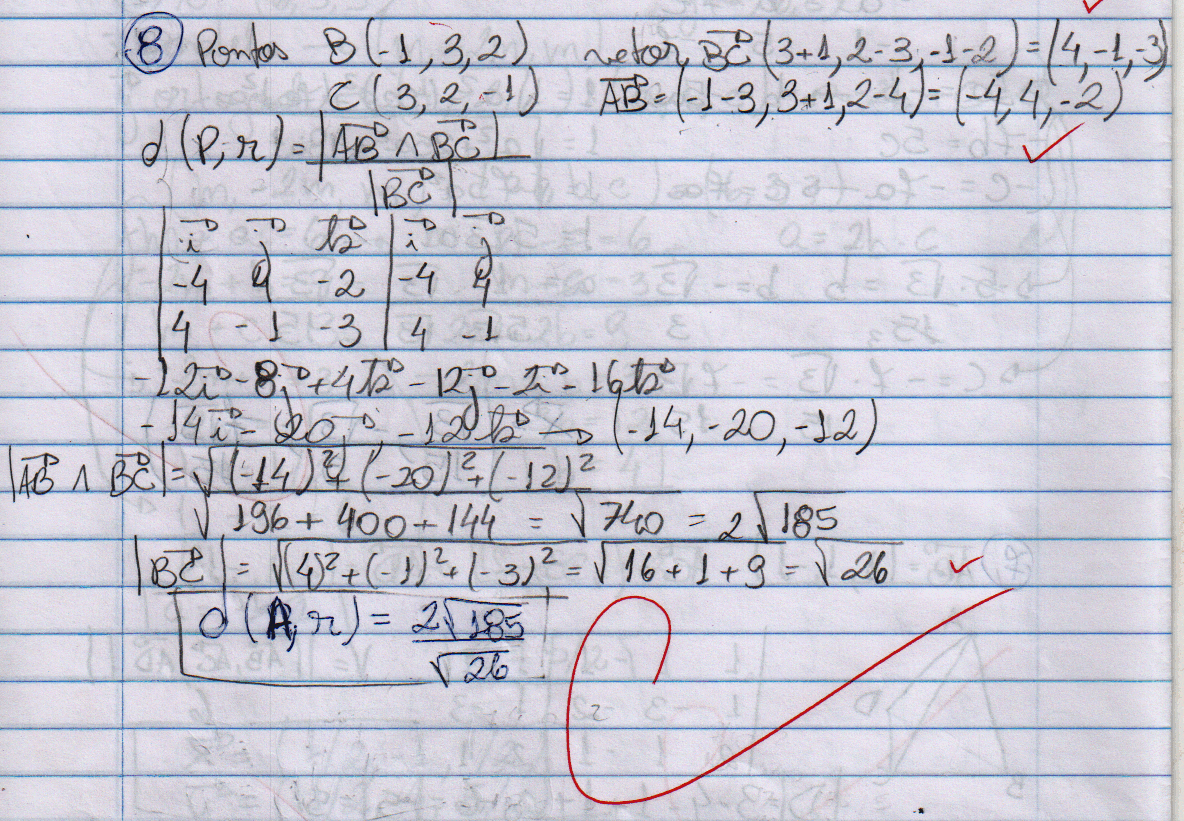 8 Pontos B(-1, 3, 2) vetor BC⃗ (3+1, 2-3, -1-2) = (4, -1, -3)
C(3, 2, -1) AB⃗ = (-1-3, 3+1, 2-4) = (-4, 4, -2)
d(P, r) = |AB⃗ ∧ BC⃗|
|BC⃗|
| i⃗ j⃗ k⃗ | i⃗ j⃗
| -4 4 -2 | -4 4
| 4 -1 -3 | 4 -1
-12i⃗ - 8j⃗ + 4k⃗ - 12j⃗ - 2i⃗ - 16k⃗
-14i⃗ - 20j⃗ - 12k⃗ → (-14, -20, -12)
|AB⃗ ∧ BC⃗| = √(-14)² + (-20)² + (-12)²
√196 + 400 + 144 = √740 = 2√185
|BC⃗| = √(4)² + (-1)² + (-3)² = √16 + 1 + 9 = √26
d(A, r) = 2√185
√26